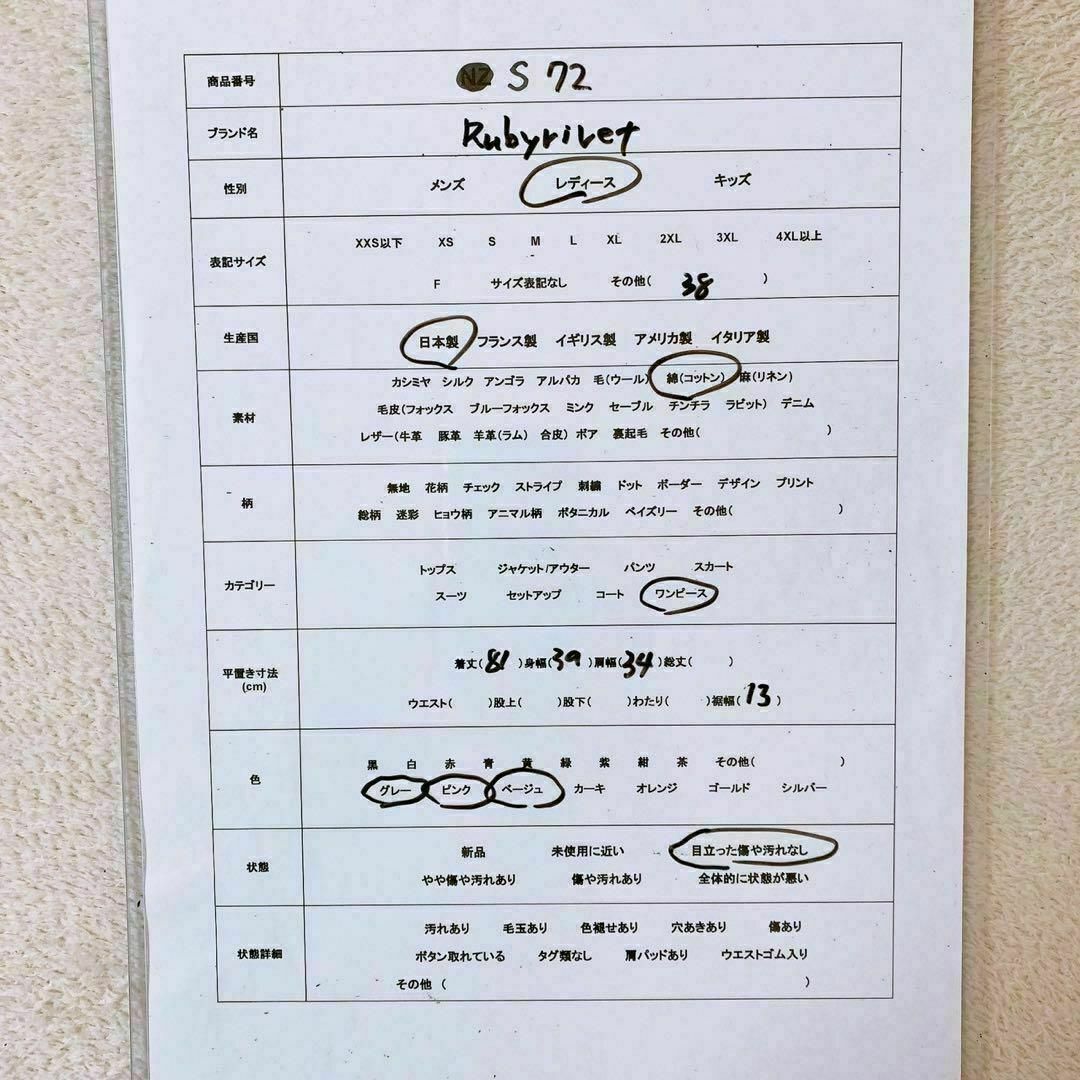 商品番号 NZ S 72
ブランド名 Rubyrivet
性別 メンズ レディース キッズ
表記サイズ
XXS以下 XS S M L XL 2XL 3XL 4XL以上
F サイズ表記なし その他( 38 )
生産国 日本製 フランス製 イギリス製 アメリカ製 イタリア製
素材
カシミヤ シルク アンゴラ アルパカ 毛(ウール) 綿(コットン) 麻(リネン)
毛皮(フォックス ブルーフォックス ミンク セーブル チンチラ ラビット) デニム
レザー(牛革 豚革 羊革(ラム) 合皮) ボア 裏起毛 その他( )
柄
無地 花柄 チェック ストライプ 刺繍 ドット ボーダー デザイン プリント
総柄 迷彩 ヒョウ柄 アニマル柄 ボタニカル ペイズリー その他( )
カテゴリー
トップス ジャケット/アウター パンツ スカート
スーツ セットアップ コート ワンピース
平置き寸法
(cm)
着丈( 81 )身幅( 39 )肩幅( 34 )総丈( )
ウエスト( )股上( )股下( )わたり( )裾幅( 13 )
色
黒 白 赤 青 黄 緑 紫 紺 茶 その他( )
グレー ピンク ベージュ カーキ オレンジ ゴールド シルバー
状態
新品 未使用に近い 目立った傷や汚れなし
やや傷や汚れあり 傷や汚れあり 全体的に状態が悪い
状態詳細
汚れあり 毛玉あり 色褪せあり 穴あきあり 傷あり
ボタン取れている タグ類なし 肩パッドあり ウエストゴム入り
その他 ( )